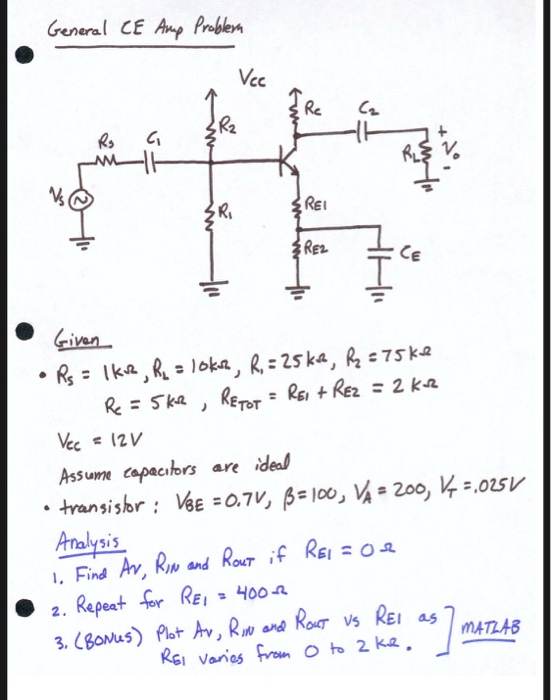 General CE Amp Problem
Vcc
Rc
C2
R2
Rs
C1
RL
+
Vo
-
Vs
R1
RE1
RE2
CE
Given
• Rs = 1kΩ, RL = 10kΩ, R1 = 25kΩ, R2 = 75kΩ
Rc = 5kΩ, RETOT = RE1 + RE2 = 2kΩ
Vcc = 12V
Assume capacitors are ideal
• transistor: VBE = 0.7V, β=100, VA = 200, VT = .025V
Analysis
1. Find Av, RIN and ROUT if RE1 = 0Ω
2. Repeat for RE1 = 400Ω
3. (BONUS) Plot Av, RIN and ROUT vs RE1 as
RE1 varies from 0 to 2kΩ.
] MATLAB